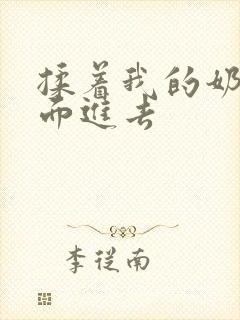 揉着我的奶
而進去
李從南